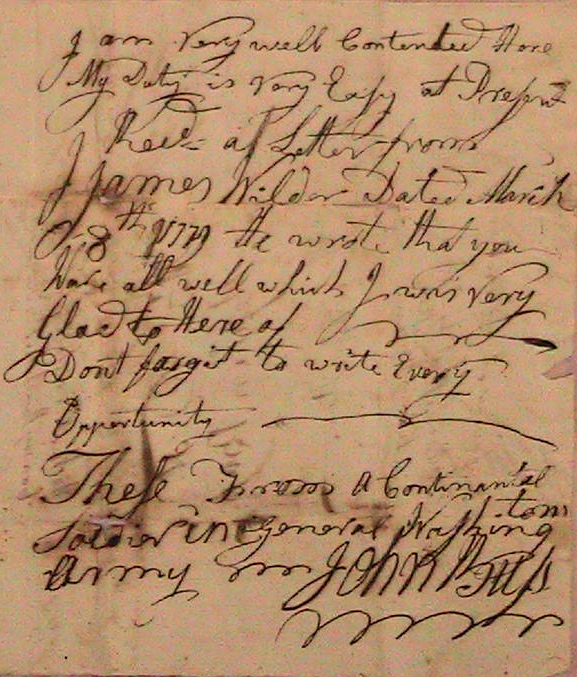 I am Very well Contended Here
My Duty is Very Easy at Present
I Recd a Letter from
James Wilder Dated March
The 8th 1779 He wrote that you
Ware all well which I was Very
Glad to Here of
Dont forgit to write Every
Opportunity
These From A Continantal
Soldier in General Washingtons
Army John